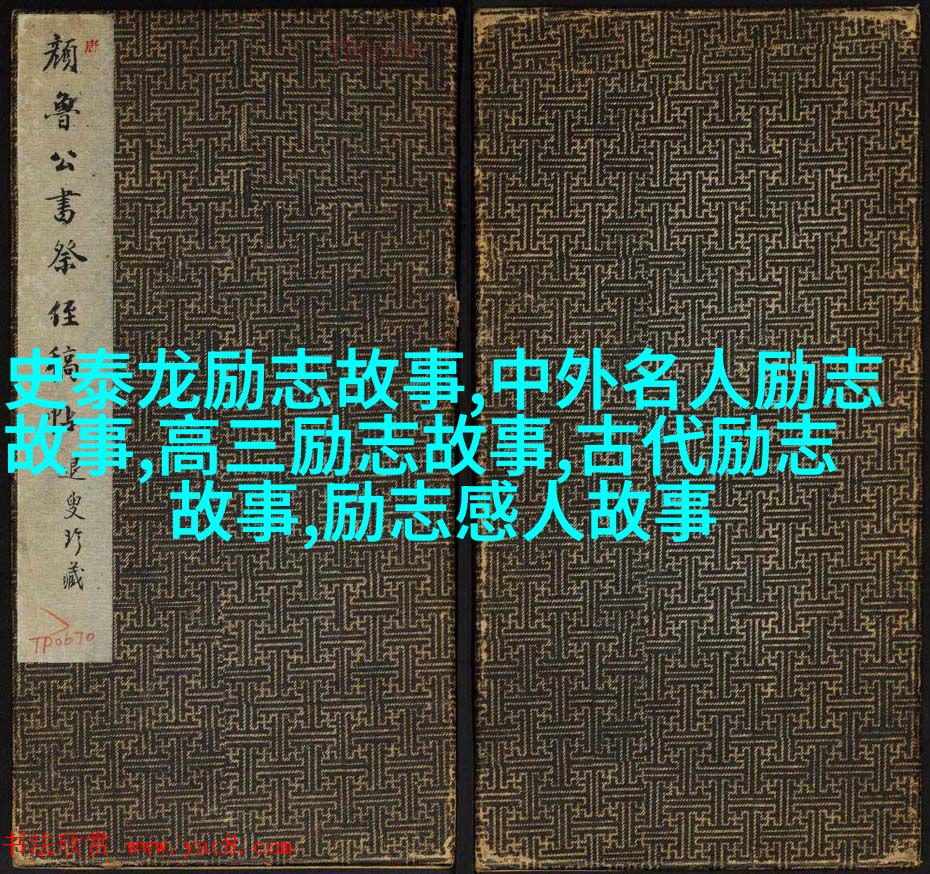 唐
顔魯公書祭侄稿帖 退叟珍藏
TP0670
史泰龙励志故事,中外名人励志
故事,高三励志故事,古代励志
故事,励志感人故事
书法欣赏 www.yac8.com